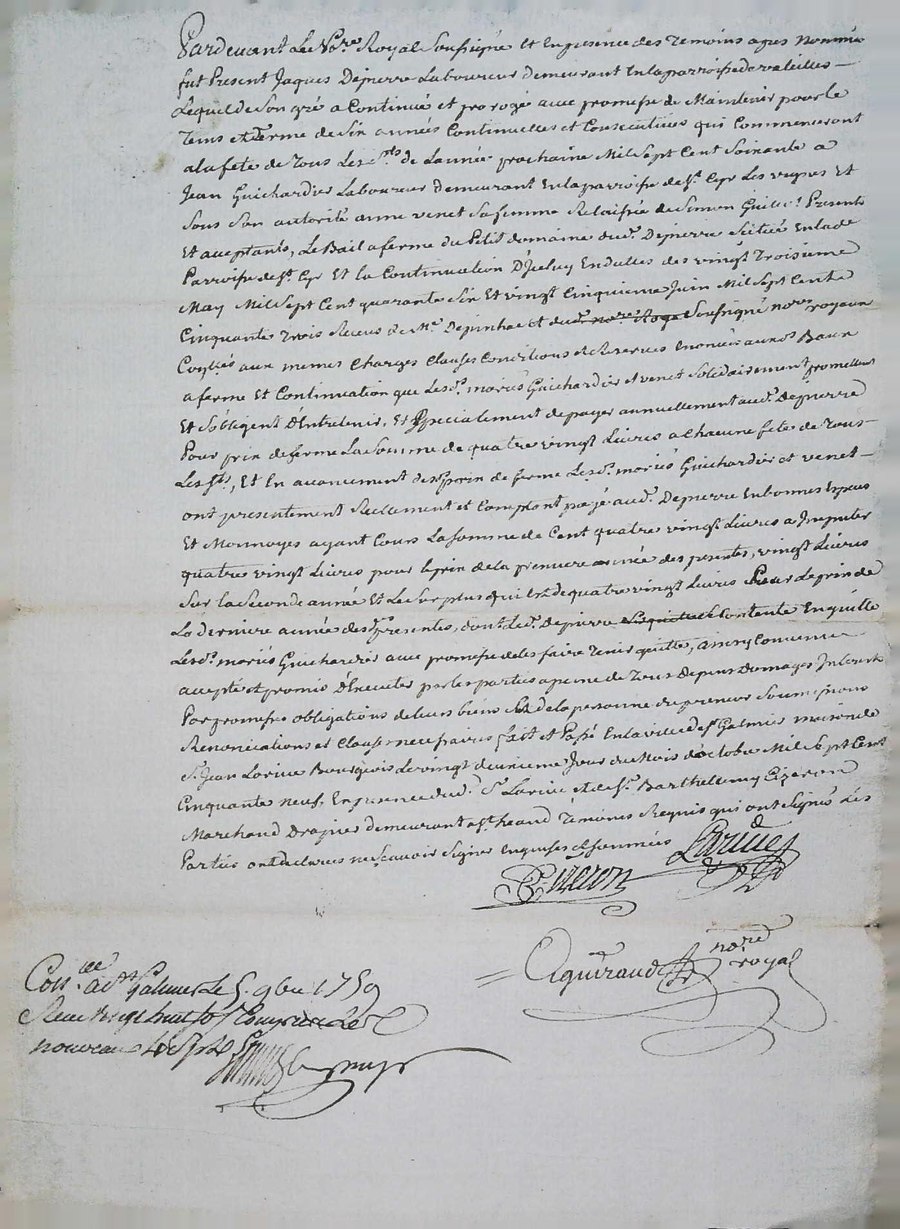 Pardevant Le No.re Royal Soussigné et En presence des Temoins apres Nommés
fut Present Jaques Depierre Laboureur demeurant En la parroisse de valeilles
Lequel de Son gré a Continué et prorogé avec promesse de Maintenir pour le
Tems et Terme de Six années Continuelles et Consecutives qui Commenseront
a la fete de Tous Les S.ts de Lannée prochaine Mil Sept Cent Soixante a
Jean Guichardier Laboureur demeurant En la parroisse de S.t Cyr Les vignes Et
Sous Son autorité anne venet Sa femme Relaissée de Simon Presents
Et acceptants, Le Bail a ferme du Petit domaine dud.t Depierre Scitué En lad.e
Parroisse de S.t Cyr Et la Continuation D'Jceluy En dattes des vingt Troisieme
May Mil Sept Cent quarante Six Et vingt Cinquieme Juin Mil Sept Cent
Cinquante Trois Receus de M.e Depinhac et dud.t no.re Roya Soussigné no.res royaux
aux memes Charges Clauses Conditions et Reserves Enoncés auxd.s Baux
a ferme Et Continuation que Lesd.s mariés Guichardier et venet Solidairement promettent
Et S'obligent D'Entretenir, Et Specialement de payer annuellement aud.t Depierre
Pour prix de ferme La Somme de quatre vingt Livres a Chacune fetes de Tous
Les S.ts, Et En avancement desd. prix de ferme Lesd.s mariés Guichardier et venet
ont presentement Reellement et Comptant payé aud.t Depierre En bonnes Especes
Et Monnoyes ayant Cours La Somme de Cent quatre vingt Livres a Imputer
quatre vingt Livres pour le prix de la premiere année des presentes, vingt Livres
Sur la Seconde année Et Le Surplus qui Est de quatre vingt Livres Pour Le prix de
La derniere année des presentes, dont Led.t Depierre Contente En quitte
Lesd.s mariés Guichardier avec promesse de les faire Tenir quittes, ainsy Convenu
accepté et promis D'Executer par les parties a peine de Tous Depens Domages Interests
Par promesses obligations de leurs biens Et de la personne du preneur Soumissions
Renonciations et Clauses necessaires fait et Passé En la ville de S.t Galmier maison de
S.r Jean Larive Bourgeois Le vingt deuxieme Jour du Mois doctobre Mil Sept Cent
Cinquante neuf, En presence dud.t S.r Larive et de S.r Barthellemy Cizeron
Marchand Drapier demeurant a S.t heand Temoins Requis qui ont Signés Les
Parties ont declarés ne Scavoir Signer Enquises et Sommées Larive
Cizeron
Aguiraud no.re royal
Con.lée a S.t Galmier Le 5. 9bre 1759
Receu vingt huit Sols Compris Les
nouveaux